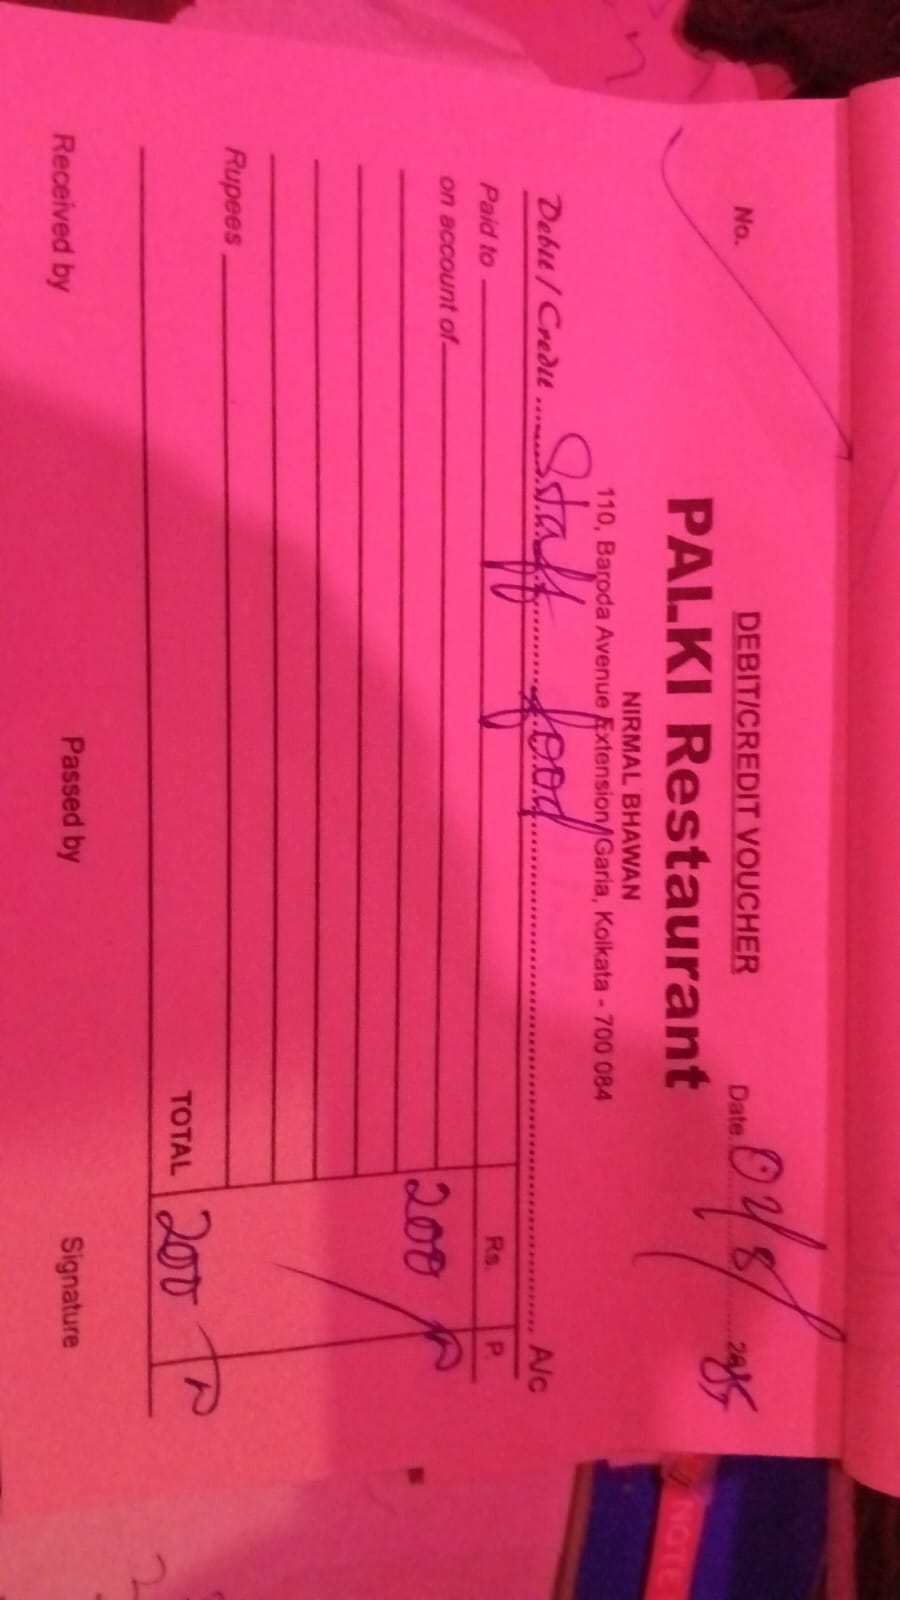 No.
DEBIT/CREDIT VOUCHER
Date
PALKI Restaurant
NIRMAL BHAWAN
110, Baroda Avenue Extension, Garia, Kolkata - 700 084
Debit / Credit Staff food A/c
Paid to Rs. P.
on account of 200
Rupees
TOTAL 200
Received by Passed by Signature
NOTE